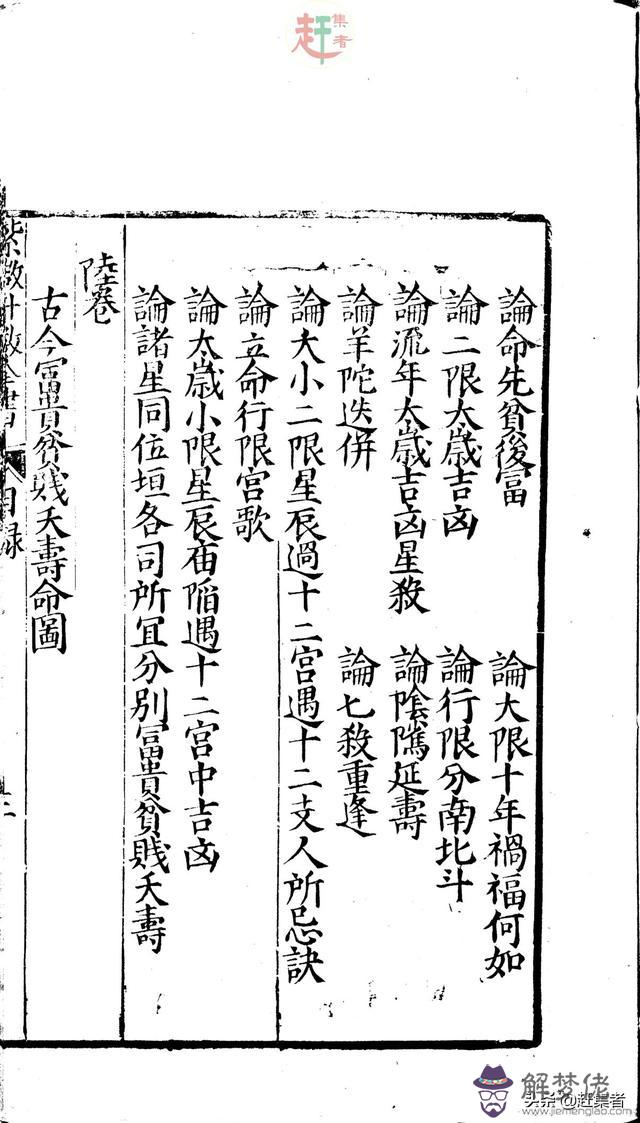 赶集者
論命先貧後富　論大限十年禍福何如
論二限太歲吉凶　論行限分南北斗
論流年太歲吉凶星殺　論陰騭延壽
論羊陀迭併　論七殺重逢
論大小二限星辰過十二宮遇十二支人所忌訣
論立命行限宮歌
論太歲小限星辰庙陷遇十二宮中吉凶
論諸星同位垣各司所冝分別冨貴貧賤夭壽
陸卷
古今冨貴貧賤夭壽命圖
目録
解梦佬
头条@赶集者
www.jiemenglao.com